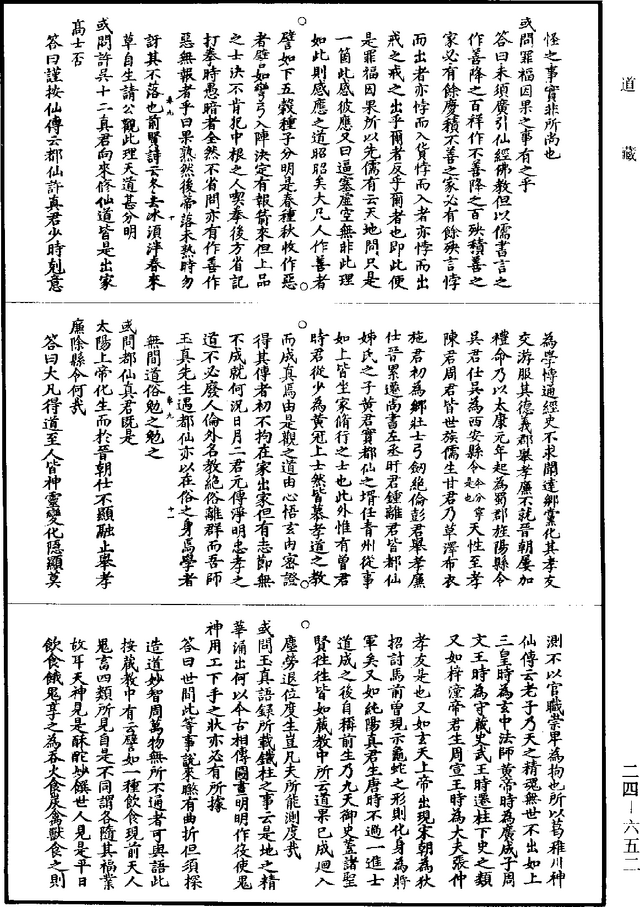 道藏
怪之事實非所尚也
或問罪福因果之事有之乎
答曰未須廣引仙經佛教但以儒書言之
作善降之百祥作不善降之百殃積善之
家必有餘慶積不善之家必有餘殃言悖
而出者亦悖而入貨悖而入者亦悖而出
戒之戒之出乎爾者反乎爾者也即此便
是罪福因果所以先儒有云天地間只是
一箇此感彼應又曰逼塞虛空無非此理
如此則感應之道昭昭矣大凡人作善者
譬如下五穀種子分明是春種秋收作惡
者譬如彎弓入陣決定有報箭來但上品
之士決不肯犯中根之人喫拳後方省記
打拳時愚暗者全然不省問亦有作善作
惡無報者乎曰果熟然後蒂落未熟時勿
訝其不落也前賢詩云冬去冰須泮春來
草自生請公觀此理天道甚分明
或問許吳十二真君向來修仙道皆是出家
高士否
答曰謹按仙傳云都仙許真君少時剋意
卷九
十
為學博通經史不求聞達鄉黨化其孝友
交游服其德義郡舉孝廉不就晉朝屢加
禮命乃以太康元年起為蜀郡旌陽縣令
吳君仕吳為西安縣令今分寧是也天性至孝
陳君周君皆世族儒生甘君乃草澤布衣
施君初為鄉壯士弓劒絶倫彭君舉孝廉
仕晉累遷尚書左丞盱君鍾離君皆都仙
姊氏之子黃君實都仙之壻任青州從事
如上皆坐家脩行之士也此外惟有曾君
時君從少為黃冠上士然皆慕孝道之教
而成真焉由是觀之道由心悟玄由密證
得其傳者初不拘在家出家但有志節無
不成就何況日月二君元傳淨明忠孝之
道不必廢人倫外名教絶俗離群而吾師
玉真先生遇都仙亦以在俗之身爲學者
無間道俗勉之勉之
卷九
十一
或問都仙真君既是
太陽上帝化生而於晉朝仕不顯融止舉孝
廉除縣令何哉
答曰大凡得道至人皆神靈變化隱顯莫
測不以官職崇卑為拘也所以葛稚川神
仙傳云老子乃天之精魂無世不出如上
三皇時為玄中法師黃帝時為廣成子周
文王時為守藏史武王時遷柱下史之類
又如梓潼帝君生周宣王時為大夫張仲
孝友是也又如玄天上帝出現宋朝為狄
招討馬前曾現示龜蛇之形則化身為將
軍矣又如純陽真君生唐時不過一進士
道成之後自稱前生乃九天御史蓋諸聖
賢往往皆如藏教中所云道果已成迴入
塵勞退位度生豈凡夫所能測度哉
或問玉真語録所載鐵柱之事云是地之精
華涌出何以今古相傳圖畫明明作役使鬼
神用工下手之狀亦必有所據
答曰世間此等事説來賒有曲折但須探
造道妙智周萬物無所不通者可與語此
按藏教中有云譬如一種飲食現前天人
鬼畜四類所見自是不同謂各隨其福業
故耳天神見是酥酡妙饌世人見是平日
飲食餓鬼享之為吞火食炭禽獸食之則
二四—六五二